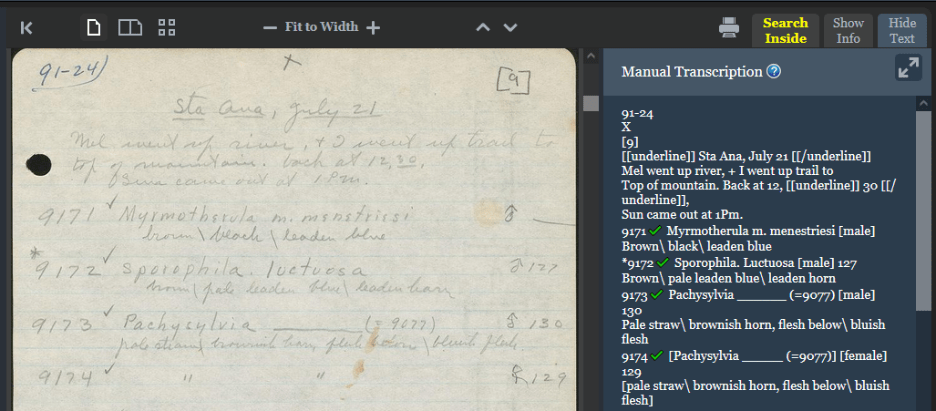 Fit to Width
Search Inside
Show Info
Hide Text
91-24)
X
[9]
Sta Ana, July 21
Mel went up river, + I went up trail to
top of mountain. back at 12,30,
Sun came out at 1Pm.
9171 ✓ Myrmotherula m. menstriesi ♂ __
brown \ black \ leaden blue
*9172 ✓ Sporophila. luctuosa ♂ 127
brown \ pale leaden blue \ leaden horn
9173 ✓ Pachysylvia ______ (= 9077) ♂ 130
pale straw \ brownish horn, flesh below \ bluish flesh.
9174 ✓ " " ♀ 129
Manual Transcription ?
91-24
X
[9]
[[underline]] Sta Ana, July 21 [[/underline]]
Mel went up river, + I went up trail to
Top of mountain. Back at 12, [[underline]] 30 [[/
underline]],
Sun came out at 1Pm.
9171 ✓ Myrmotherula m. menestriesi [male]
Brown\ black\ leaden blue
*9172 ✓ Sporophila. Luctuosa [male] 127
Brown\ pale leaden blue\ leaden horn
9173 ✓ Pachysylvia ______ (=9077) [male]
130
Pale straw\ brownish horn, flesh below\ bluish
flesh
9174 ✓ [Pachysylvia _____ (=9077)] [female]
129
[pale straw\ brownish horn, flesh below\ bluish
flesh]